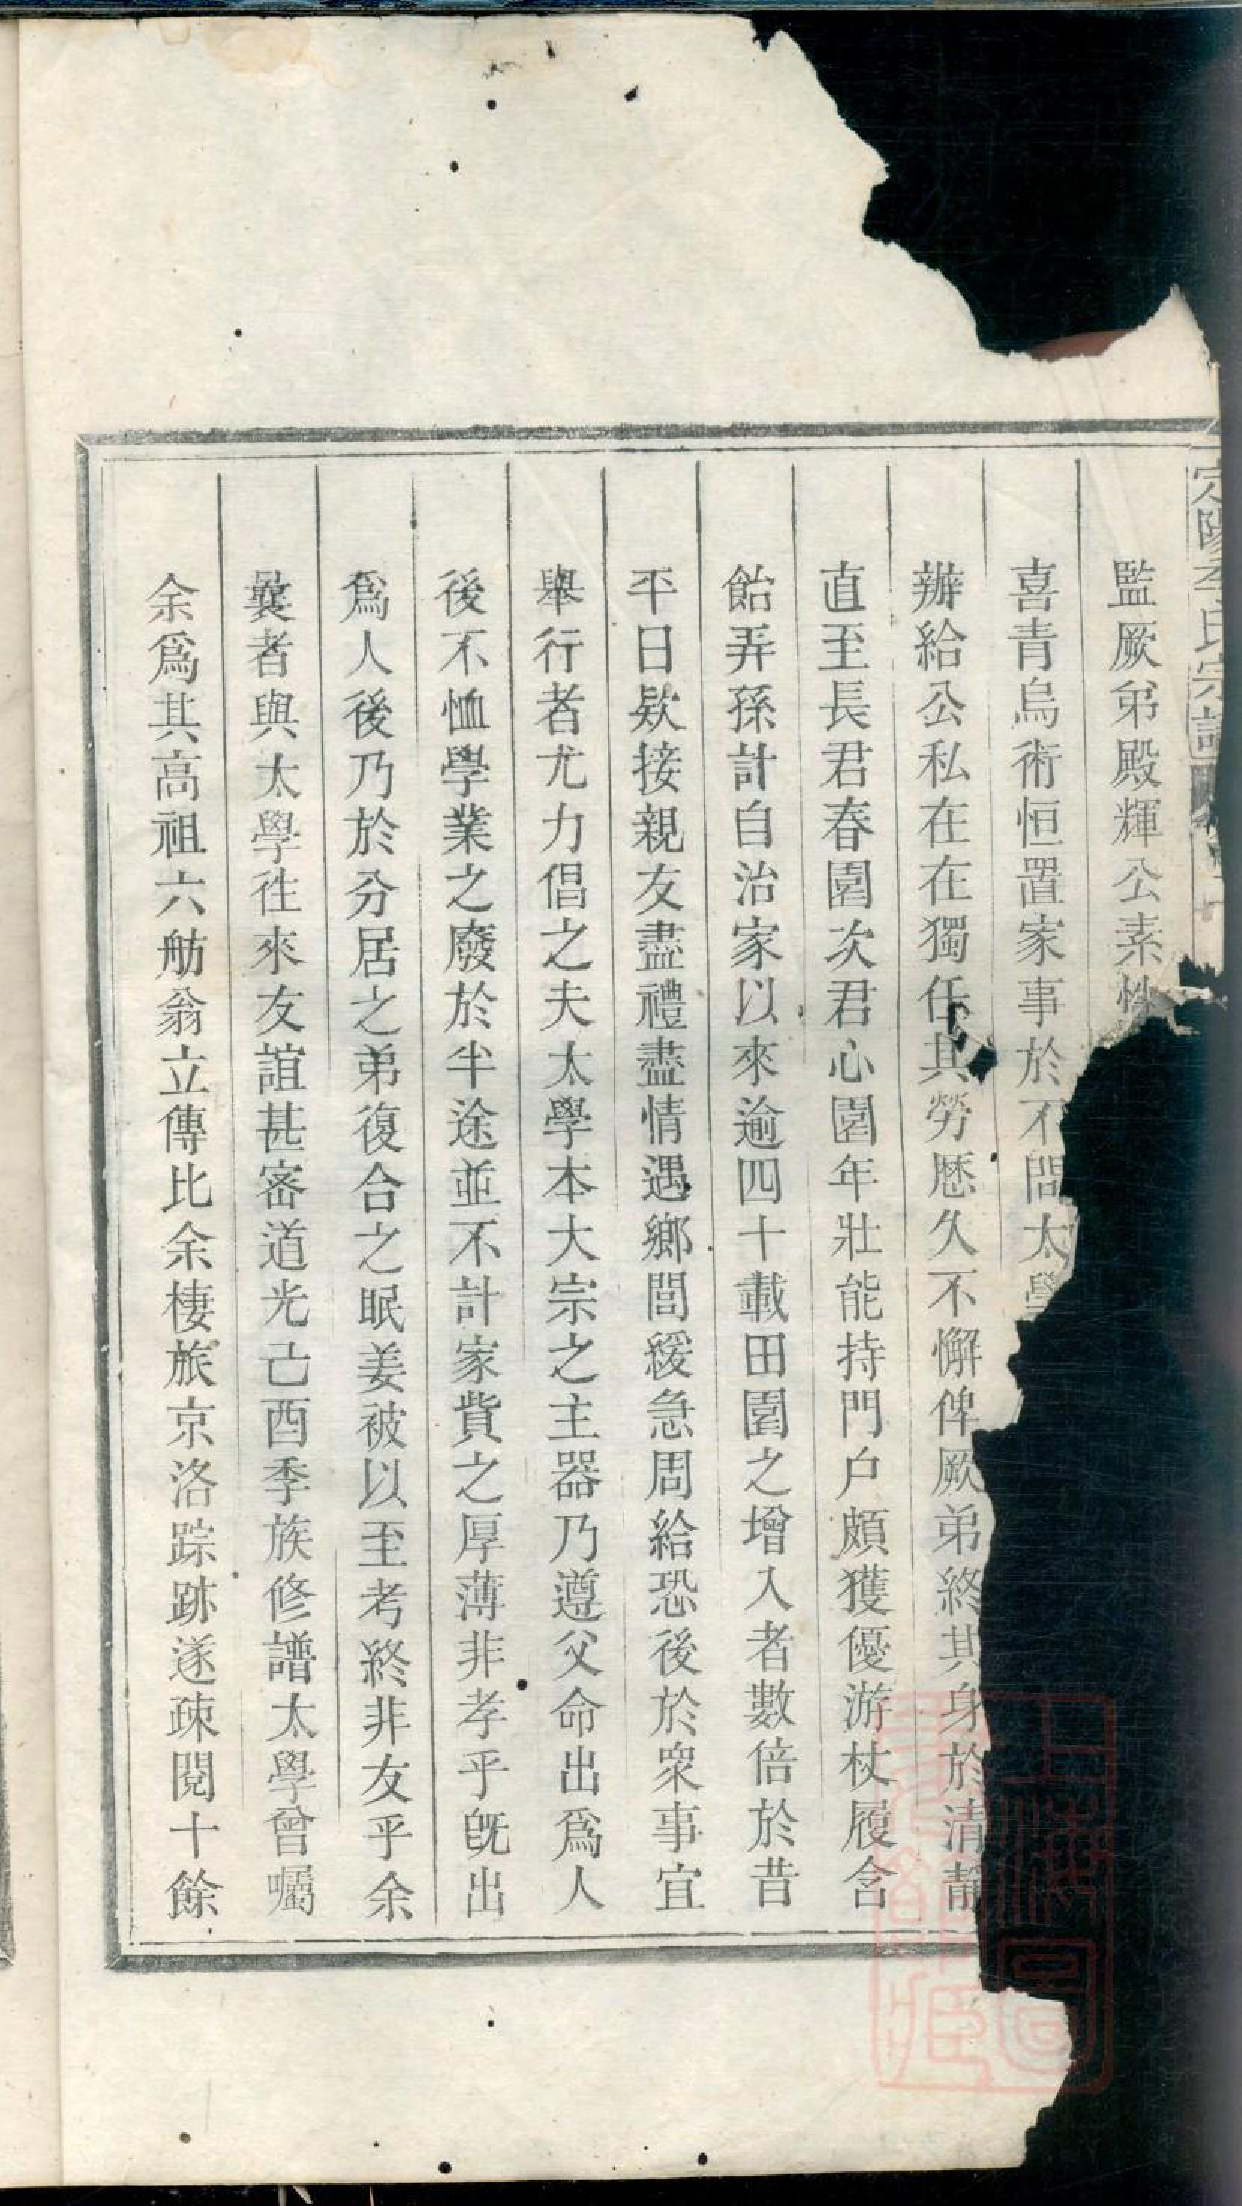 定陽李氏宗譜
監厥弟殿輝公素性
喜青烏術恒置家事於不問太學
辦給公私在在獨任其勞歷久不懈俾厥弟終其身於清靜
直至長君春園次君心園年壯能持門户頗獲優游杖履含
飴弄孫計自治家以來逾四十載田園之增入者數倍於昔
平日欵接親友盡禮盡情遇鄉閭緩急周給恐後於衆事宜
舉行者尤力倡之夫太學本大宗之主器乃遵父命出爲人
後不恤學業之廢於半途並不計家貲之厚薄非孝乎旣出
爲人後乃於分居之弟復合之眠姜被以至考終非友乎余
曩者與太學徃來友誼甚密道光己酉季族修譜太學曾囑
余爲其高祖六舫翁立傳比余棲旅京洛踪跡遂疎閱十餘
上海圖書館藏